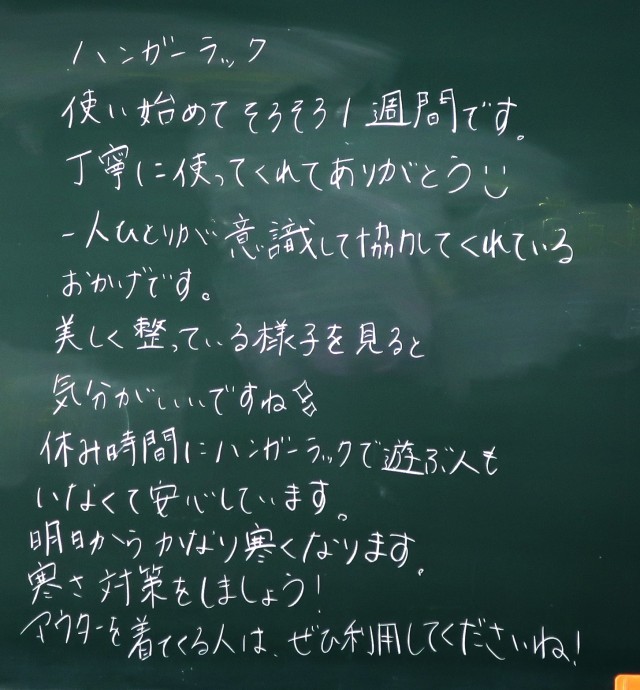 ハンガーラック
使い始めてそろそろ1週間です。
丁寧に使ってくれてありがとう
一人ひとりが意識して協力してくれている
おかげです。
美しく整っている様子を見ると
気分がいいですね
休み時間にハンガーラックで遊ぶ人も
いなくて安心しています。
明日からかなり寒くなります。
寒さ対策をしましょう!
アウターを着てくる人は、ぜひ利用してくださいね!